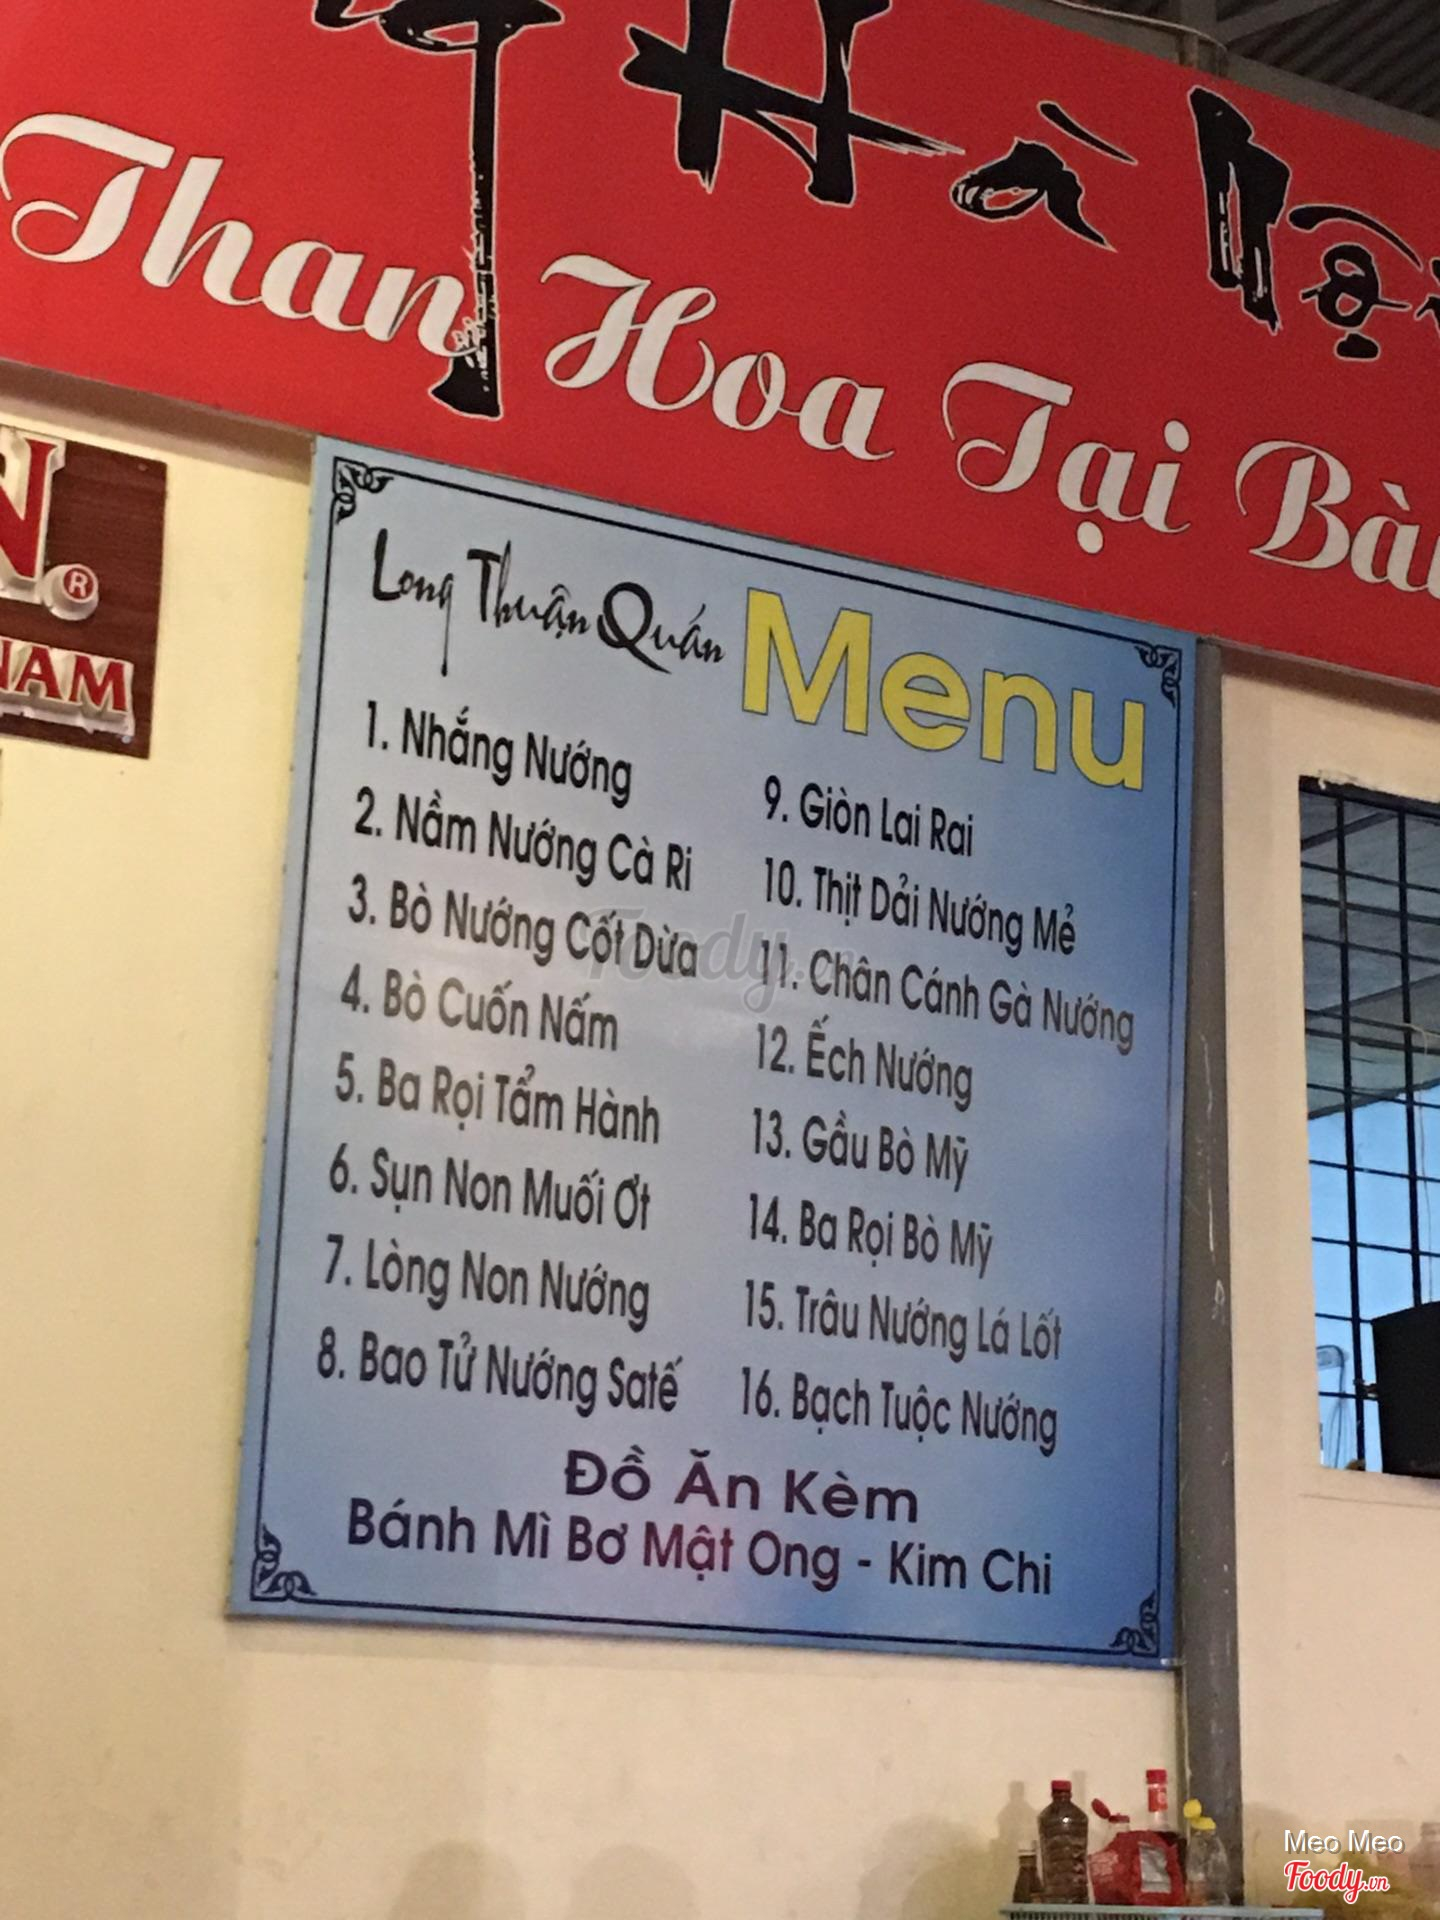 Hà Nội
Than Hoa Tại Bàn
N®
NAM
Long Thuận Quán Menu
1. Nhắng Nướng
2. Nầm Nướng Cà Ri
3. Bò Nướng Cốt Dừa
4. Bò Cuốn Nấm
5. Ba Rọi Tẩm Hành
6. Sụn Non Muối Ớt
7. Lòng Non Nướng
8. Bao Tử Nướng Satế
9. Giòn Lai Rai
10. Thịt Dải Nướng Mẻ
11. Chân Cánh Gà Nướng
12. Ếch Nướng
13. Gầu Bò Mỹ
14. Ba Rọi Bò Mỹ
15. Trâu Nướng Lá Lốt
16. Bạch Tuộc Nướng
Đồ Ăn Kèm
Bánh Mì Bơ Mật Ong - Kim Chi
Foody.vn
Meo Meo
Foody.vn